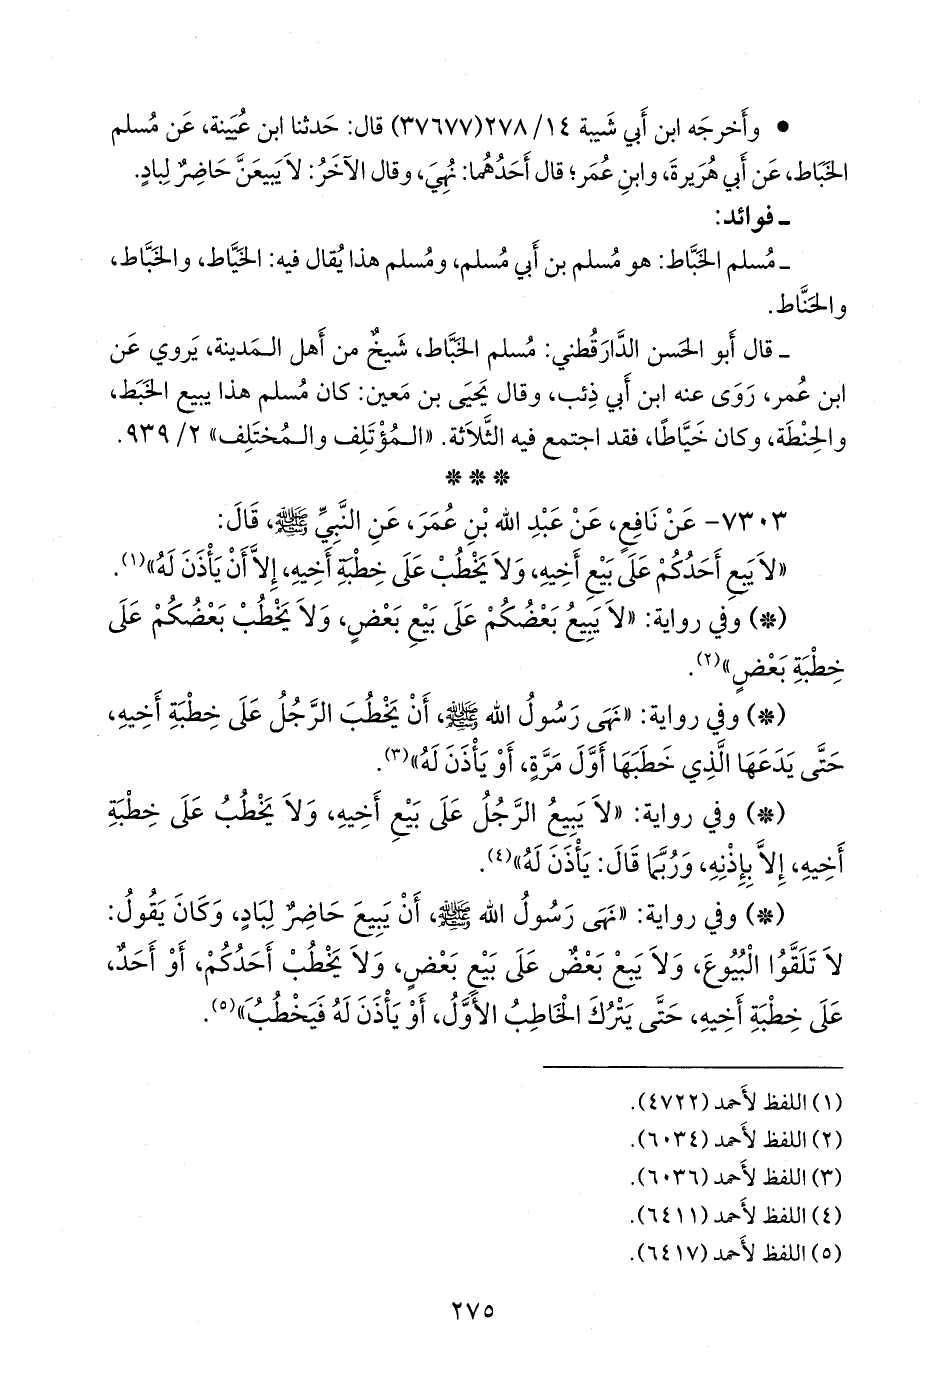 • وأَخرجَه ابن أَبي شَيبة ١٤/ ٢٧٨(٣٧٦٧٧) قال: حَدثنا ابن عُيَينة، عَن مُسلم
الخَبَّاط، عَن أَبي هُرَيرةَ، وابنِ عُمَر؛ قال أَحَدُهُما: نُهِيَ، وقال الآخَرُ: لاَ يَبيعَنَّ حَاضِرٌ لِبادٍ.
ـ فوائد:
ـ مُسلم الخَبَّاط: هو مُسلم بن أَبي مُسلم، ومُسلم هذا يُقال فيه: الخَيَّاط، والخَبَّاط،
والحَنَّاط.
ـ قال أَبو الحَسن الدَّارَقُطني: مُسلم الخَبَّاط، شَيخٌ من أَهل الـمَدينة، يَروي عَن
ابن عُمر، رَوَى عنه ابن أَبي ذِئب، وقال يَحيَى بن مَعين: كان مُسلم هذا يبيع الخَبَط،
والحِنْطَة، وكان خَيَّاطًا، فقد اجتمع فيه الثَّلاَثة. «الـمُؤْتَلِف والـمُختَلِف» ٢/ ٩٣٩.
* * *
٧٣٠٣- عَنْ نَافِعٍ، عَنْ عَبْدِ الله بْنِ عُمَرَ، عَنِ النَّبِيِّ ﷺ، قَالَ:
«لاَ يَبِعِ أَحَدُكُمْ عَلَى بَيْعِ أَخِيهِ، وَلاَ يَخْطُبْ عَلَى خِطْبَةِ أَخِيهِ، إِلاَّ أَنْ يَأْذَنَ لَهُ»(١).
(*) وفي رواية: «لاَ يَبِيعُ بَعْضُكُمْ عَلَى بَيْعِ بَعْضٍ، وَلاَ يَخْطُبْ بَعْضُكُمْ عَلَى
خِطْبَةِ بَعْضٍ»(٢).
(*) وفي رواية: «نَهَى رَسُولُ الله ﷺ، أَنْ يَخْطُبَ الرَّجُلُ عَلَى خِطْبَةِ أَخِيهِ،
حَتَّى يَدَعَهَا الَّذِي خَطَبَهَا أَوَّلَ مَرَّةٍ، أَوْ يَأْذَنَ لَهُ»(٣).
(*) وفي رواية: «لاَ يَبِيعُ الرَّجُلُ عَلَى بَيْعِ أَخِيهِ، وَلاَ يَخْطُبُ عَلَى خِطْبَةِ
أَخِيهِ، إِلاَّ بِإِذْنِهِ، وَرُبَّمَا قَالَ: يَأْذَنَ لَهُ»(٤).
(*) وفي رواية: «نَهَى رَسُولُ الله ﷺ، أَنْ يَبِيعَ حَاضِرٌ لِبَادٍ، وَكَانَ يَقُولُ:
لاَ تَلَقَّوُا الْبُيُوعَ، وَلاَ يَبِعْ بَعْضٌ عَلَى بَيْعِ بَعْضٍ، وَلاَ يَخْطُبْ أَحَدُكُمْ، أَوْ أَحَدٌ،
عَلَى خِطْبَةِ أَخِيهِ، حَتَّى يَتْرُكَ الْخَاطِبُ الأَوَّلُ، أَوْ يَأْذَنَ لَهُ فَيَخْطُبَ»(٥).
(١) اللفظ لأَحمد (٤٧٢٢).
(٢) اللفظ لأَحمد (٦٠٣٤).
(٣) اللفظ لأَحمد (٦٠٣٦).
(٤) اللفظ لأَحمد (٦٤١١).
(٥) اللفظ لأَحمد (٦٤١٧).
٢٧٥